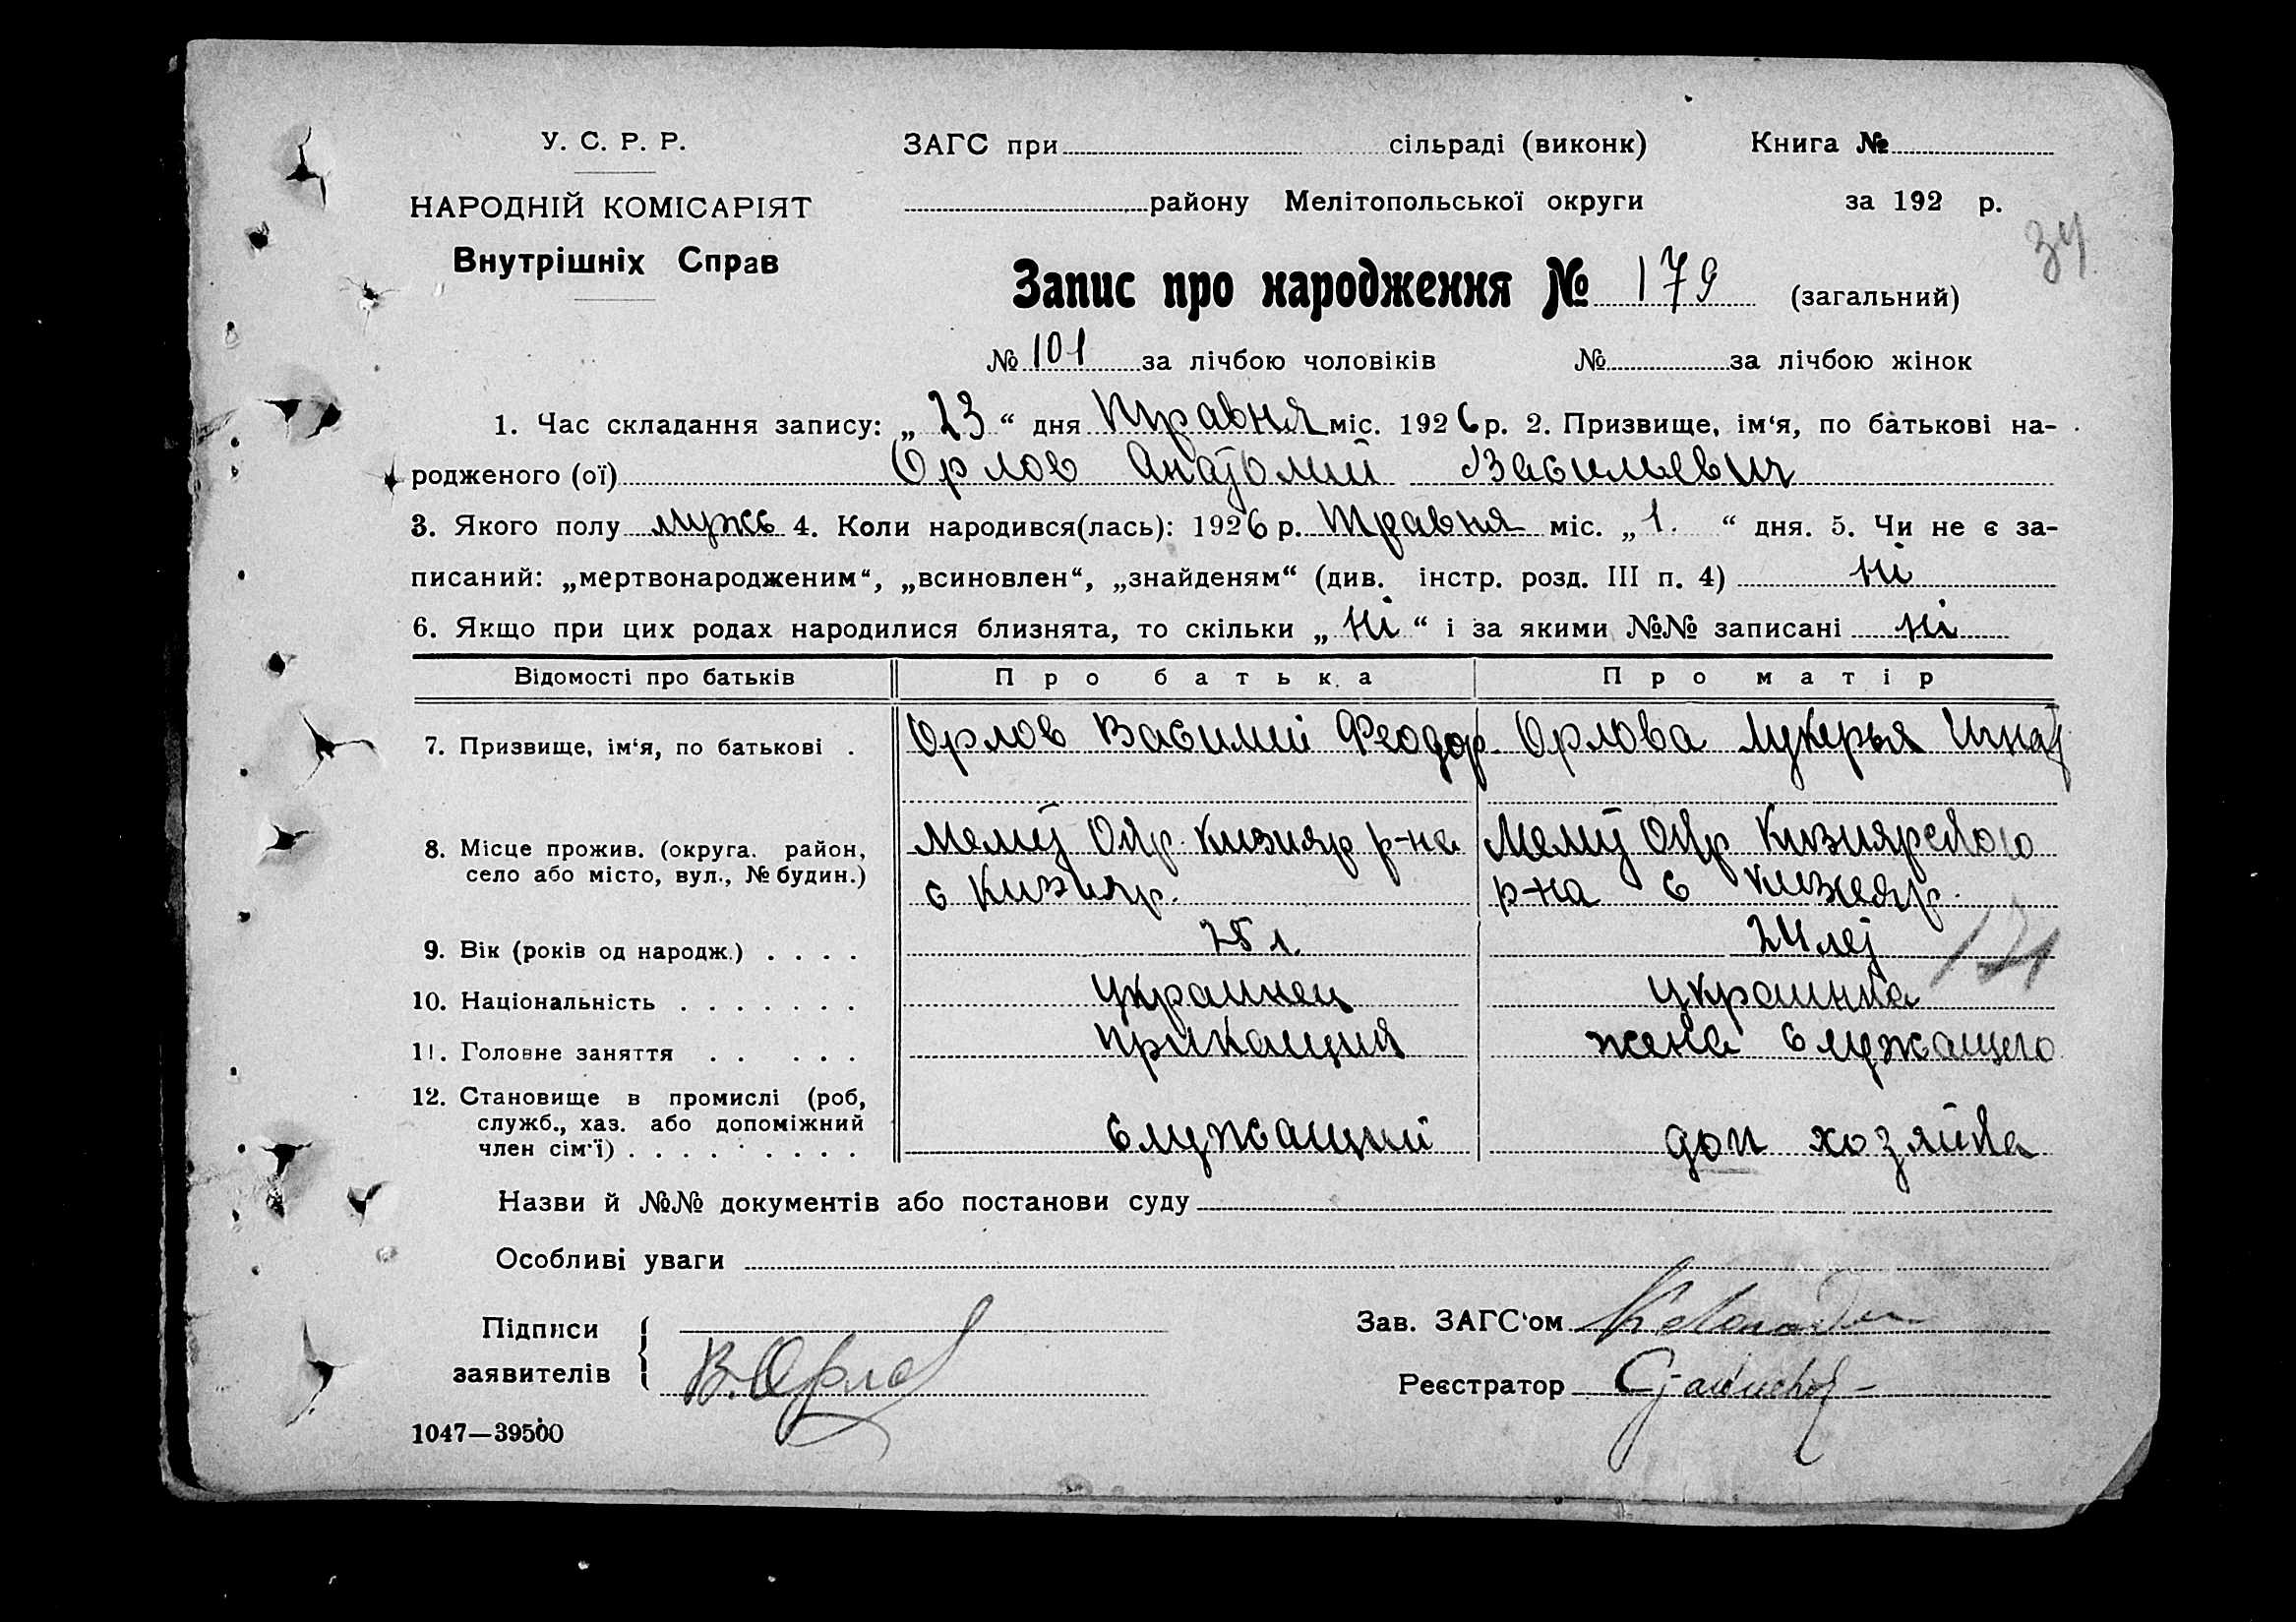 У. С. Р. Р.
НАРОДНІЙ КОМІСАРІЯТ
Внутрішніх Справ
ЗАГС при сільраді (виконк) Книга №
району Мелітопольської округи за 192 р.
34
Запис про народження № 179 (загальний)
№ 101 за лічбою чоловіків № за лічбою жінок
1. Час складання запису: „23“ дня Травня міс. 1926 р. 2. Призвище, ім‘я, по батькові на-
родженого (ої) Орлов Анатолий Васильевич
3. Якого полу мужс 4. Коли народився(лась): 1926 р. Травня міс. „1.“ дня. 5. Чи не є за-
писаний: „мертвонародженим“, „всиновлен“, „знайденям“ (див. інстр. розд. III п. 4) ні
6. Якщо при цих родах народилися близнята, то скільки „ні“ і за якими №№ записані ні
Відомості про батьків Про батька Про матір
7. Призвище, ім‘я, по батькові . Орлов Василий Феодор. Орлова Лукерья Игнат
8. Місце прожив. (округа. район, село або місто, вул., № будин.) Мелит Окр. Кизияр р-на Мелит Окр Кизиярского
с Кизияр. р-на с Кизияр.
9. Вік (років од народж.) . . . . 25 л. 24 лет
121
10. Національність . . . . . . . украинец украинка
11. Головне заняття . . . . . приказчик жена служащего
12. Становище в промислі (роб, служб., хаз. або допоміжний член сім‘ї) . . . . . . . . . служащий дом хозяйка
Назви й №№ документів або постанови суду
Особливі уваги
Підписи заявителів В. Орлов
Зав. ЗАГС‘ом
Реєстратор
1047—39500